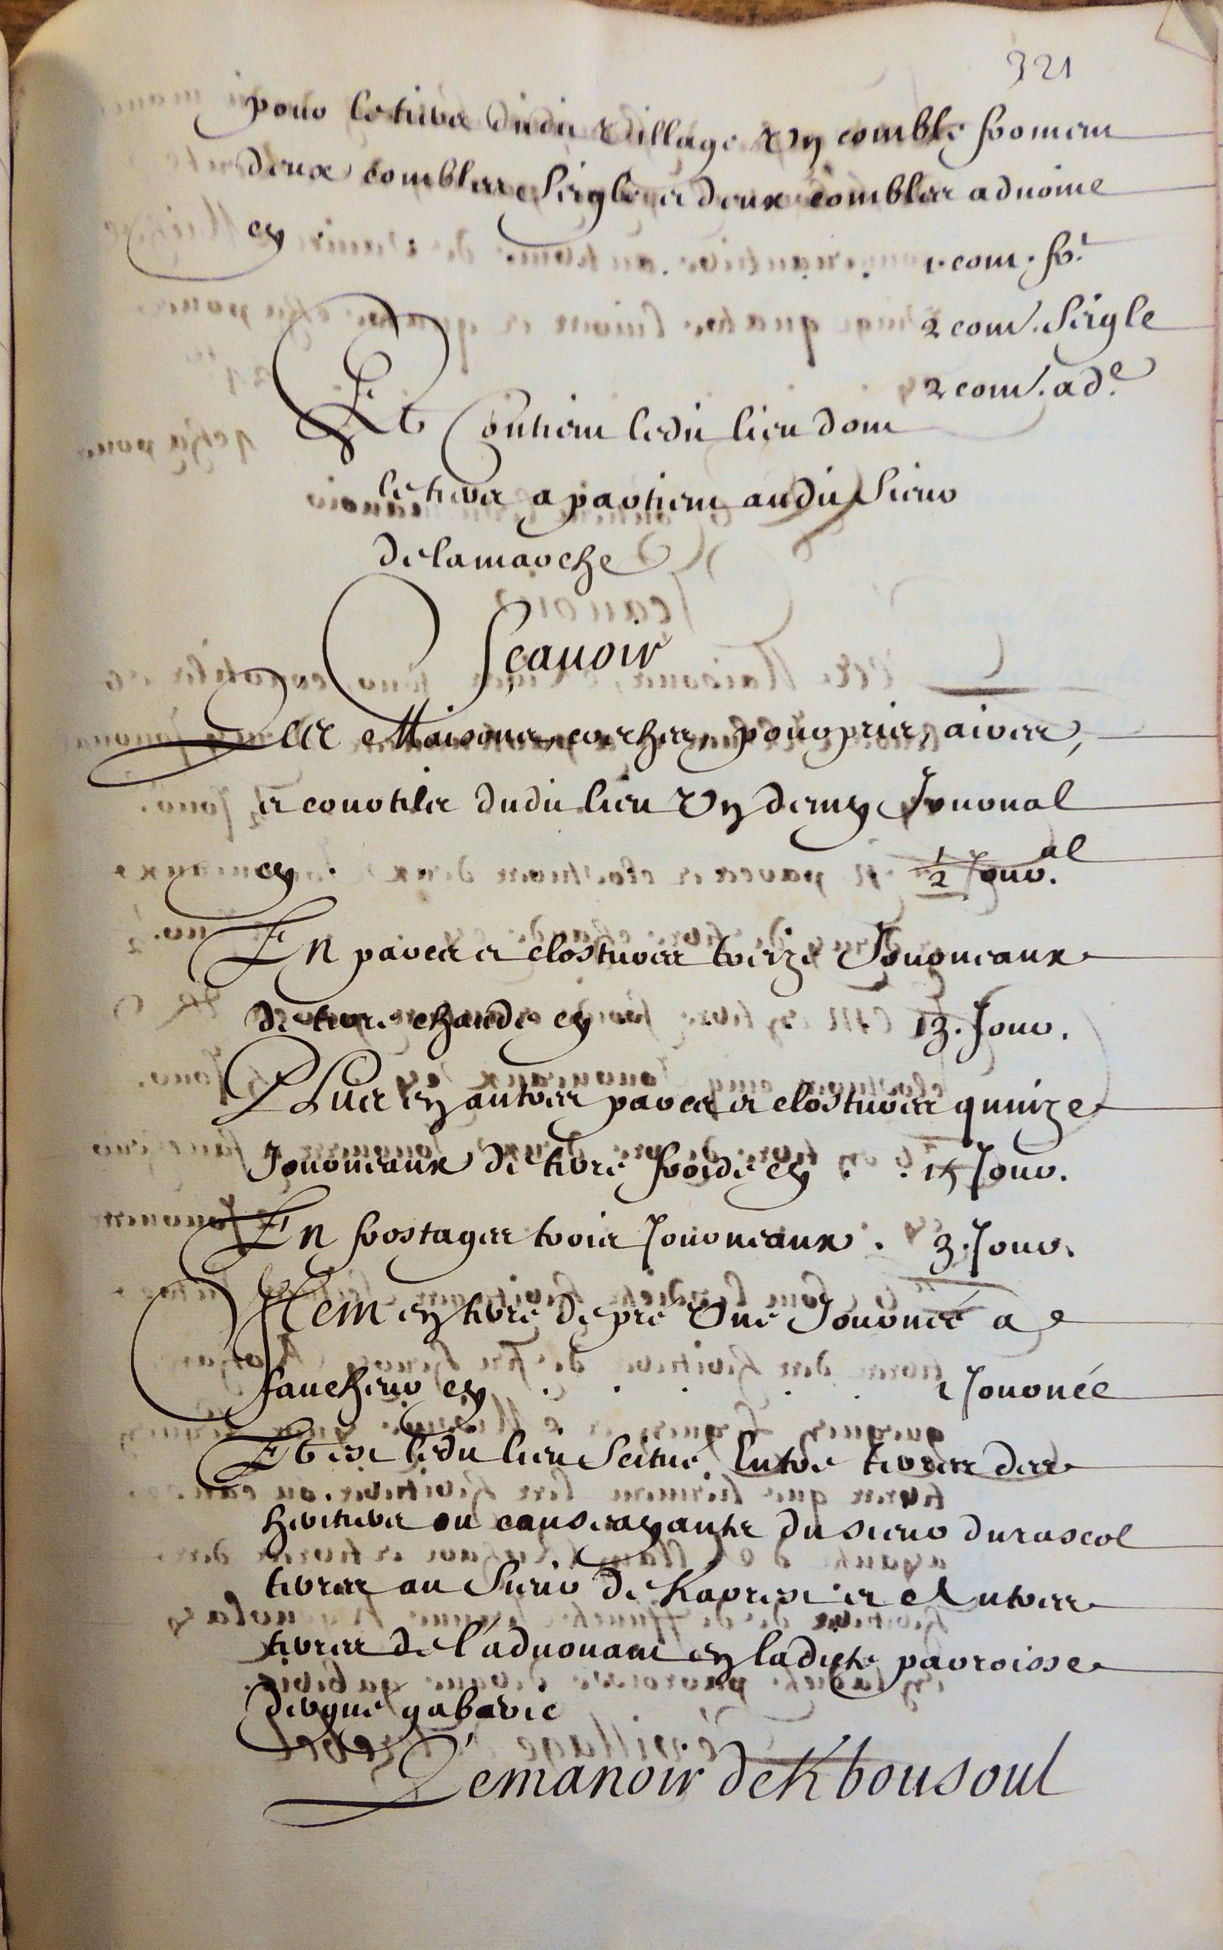 321
pour le tiers dudit Village Un comble froment
deux combles seigle et deux combles advoine
cy . . . 1. com. frt
2 com. seigle
2 com. ade
Et Contient ledit lieu dont
le tiers apartient audit sieur
de la marche
Sçauoir
Les Maisons, creches, pourpris, aires,
et courtils dudit lieu Un demy Journal
cy . ½ Jour.al
En parcs et clostures treize Journeaux
de terre chaude cy 13. Jour.
Plus en autres parcs et clostures quinze
Journeaux de terre froide cy . . 15 Jour.
En frostages trois Journeaux . 3. Jour.
Item en terre de pré Une Journée a
faucheur cy . . . . . 1 Journée
Et est ledit lieu scitué Entre terres des
heritiers ou causeayants du sieur du rascol
terres au sieur de Kaprest et Autres
terres de l'aduouant en ladicte parroisse
dergué gaberic
Le manoir de Kbousoul